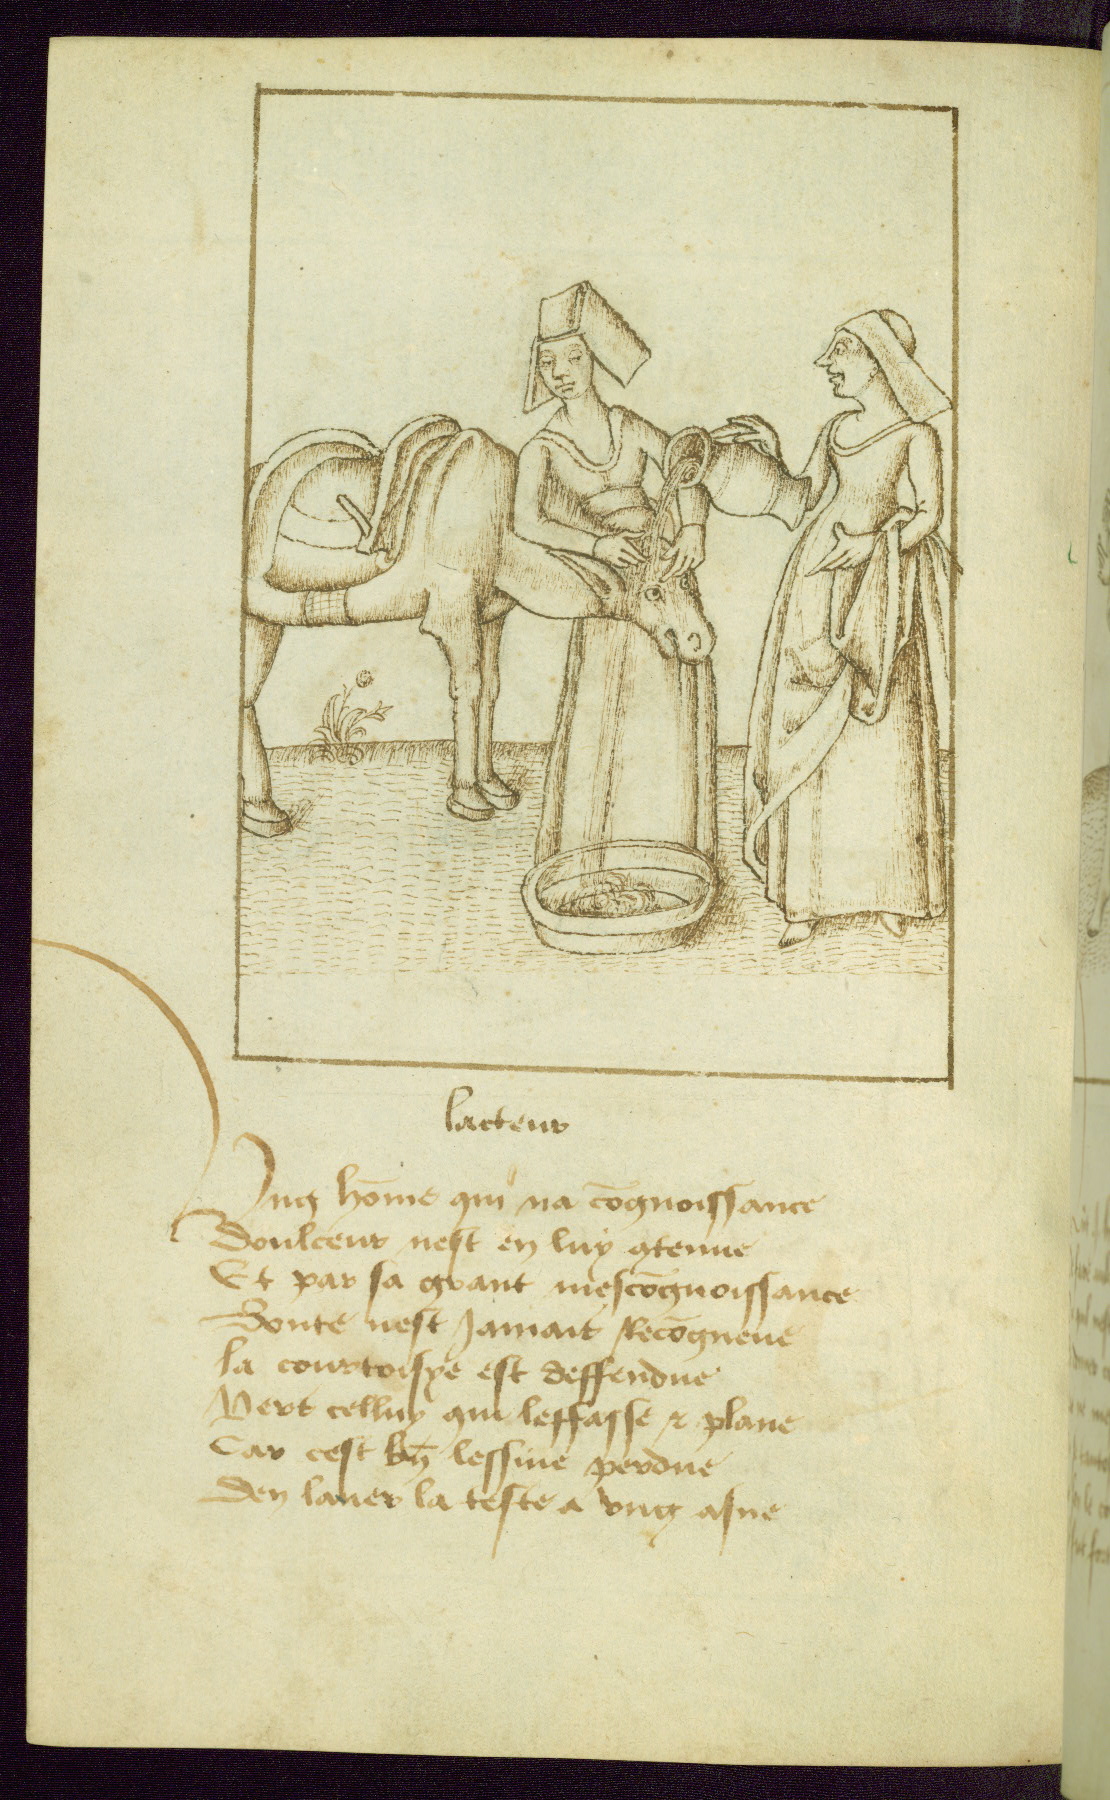 lacteur
Ung hōme qui na cōgnoissance
Doulceur nest en luy qtenue
Et par sa grant mescōgnoissance
Bonte nest Jamais Recōgneue
la courtoisye est deffendue
Vers celluy qui leffasse ⁊ plane
Car cest bn̄ lessiue perdue
Den lauer la teste a vng asne